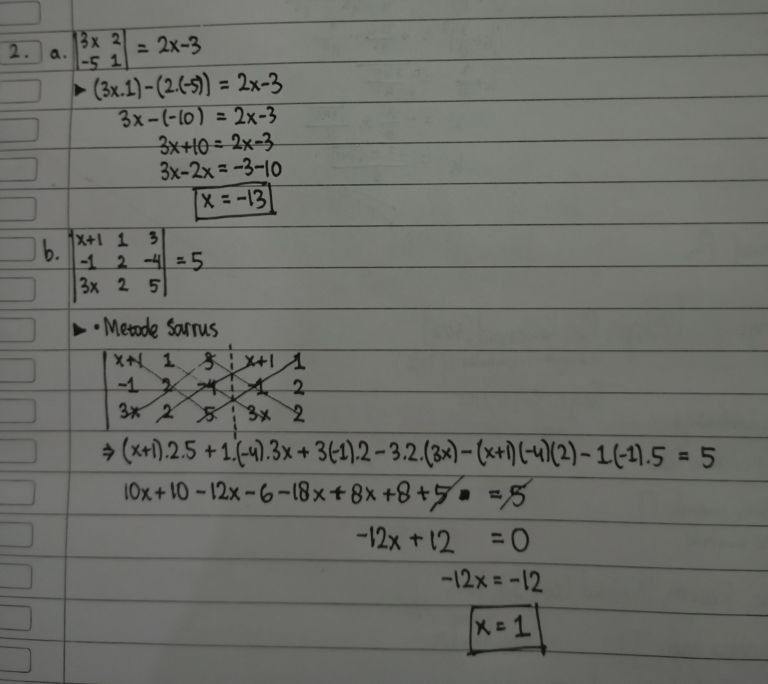 2. a. |3x 2| = 2x-3
|-5 1|
▶ (3x.1)-(2.(-5)) = 2x-3
3x-(-10) = 2x-3
3x+10 = 2x-3
3x-2x = -3-10
x = -13
b. |x+1 1 3|
|-1 2 -4| = 5
|3x 2 5|
▶ • Metode Sarrus
|x+1 1 3 x+1 1
-1 2 -4 -1 2
3x 2 5 3x 2
⇒ (x+1).2.5 + 1.(-4).3x + 3(-1).2 - 3.2.(3x) - (x+1)(-4)(2) - 1(-1).5 = 5
10x+10-12x-6-18x+8x+8+5 = 5
-12x+12 = 0
-12x = -12
x = 1